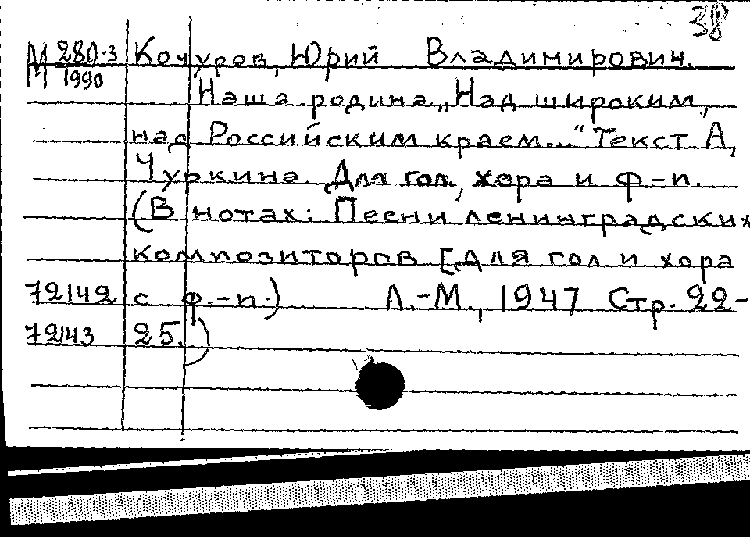 38
М 280-3 Кочуров, Юрий Владимирович.
М 1990
Наша родина „Над широким,
над Российским краем..." Текст А,
Чуркина. Для гол, хора и ф-п.
(В нотах: Песни ленинградских
композиторов [для гол и хора
72142 с ф.-п.) Л.-М., 1947 Стр. 22-
72143 25.)